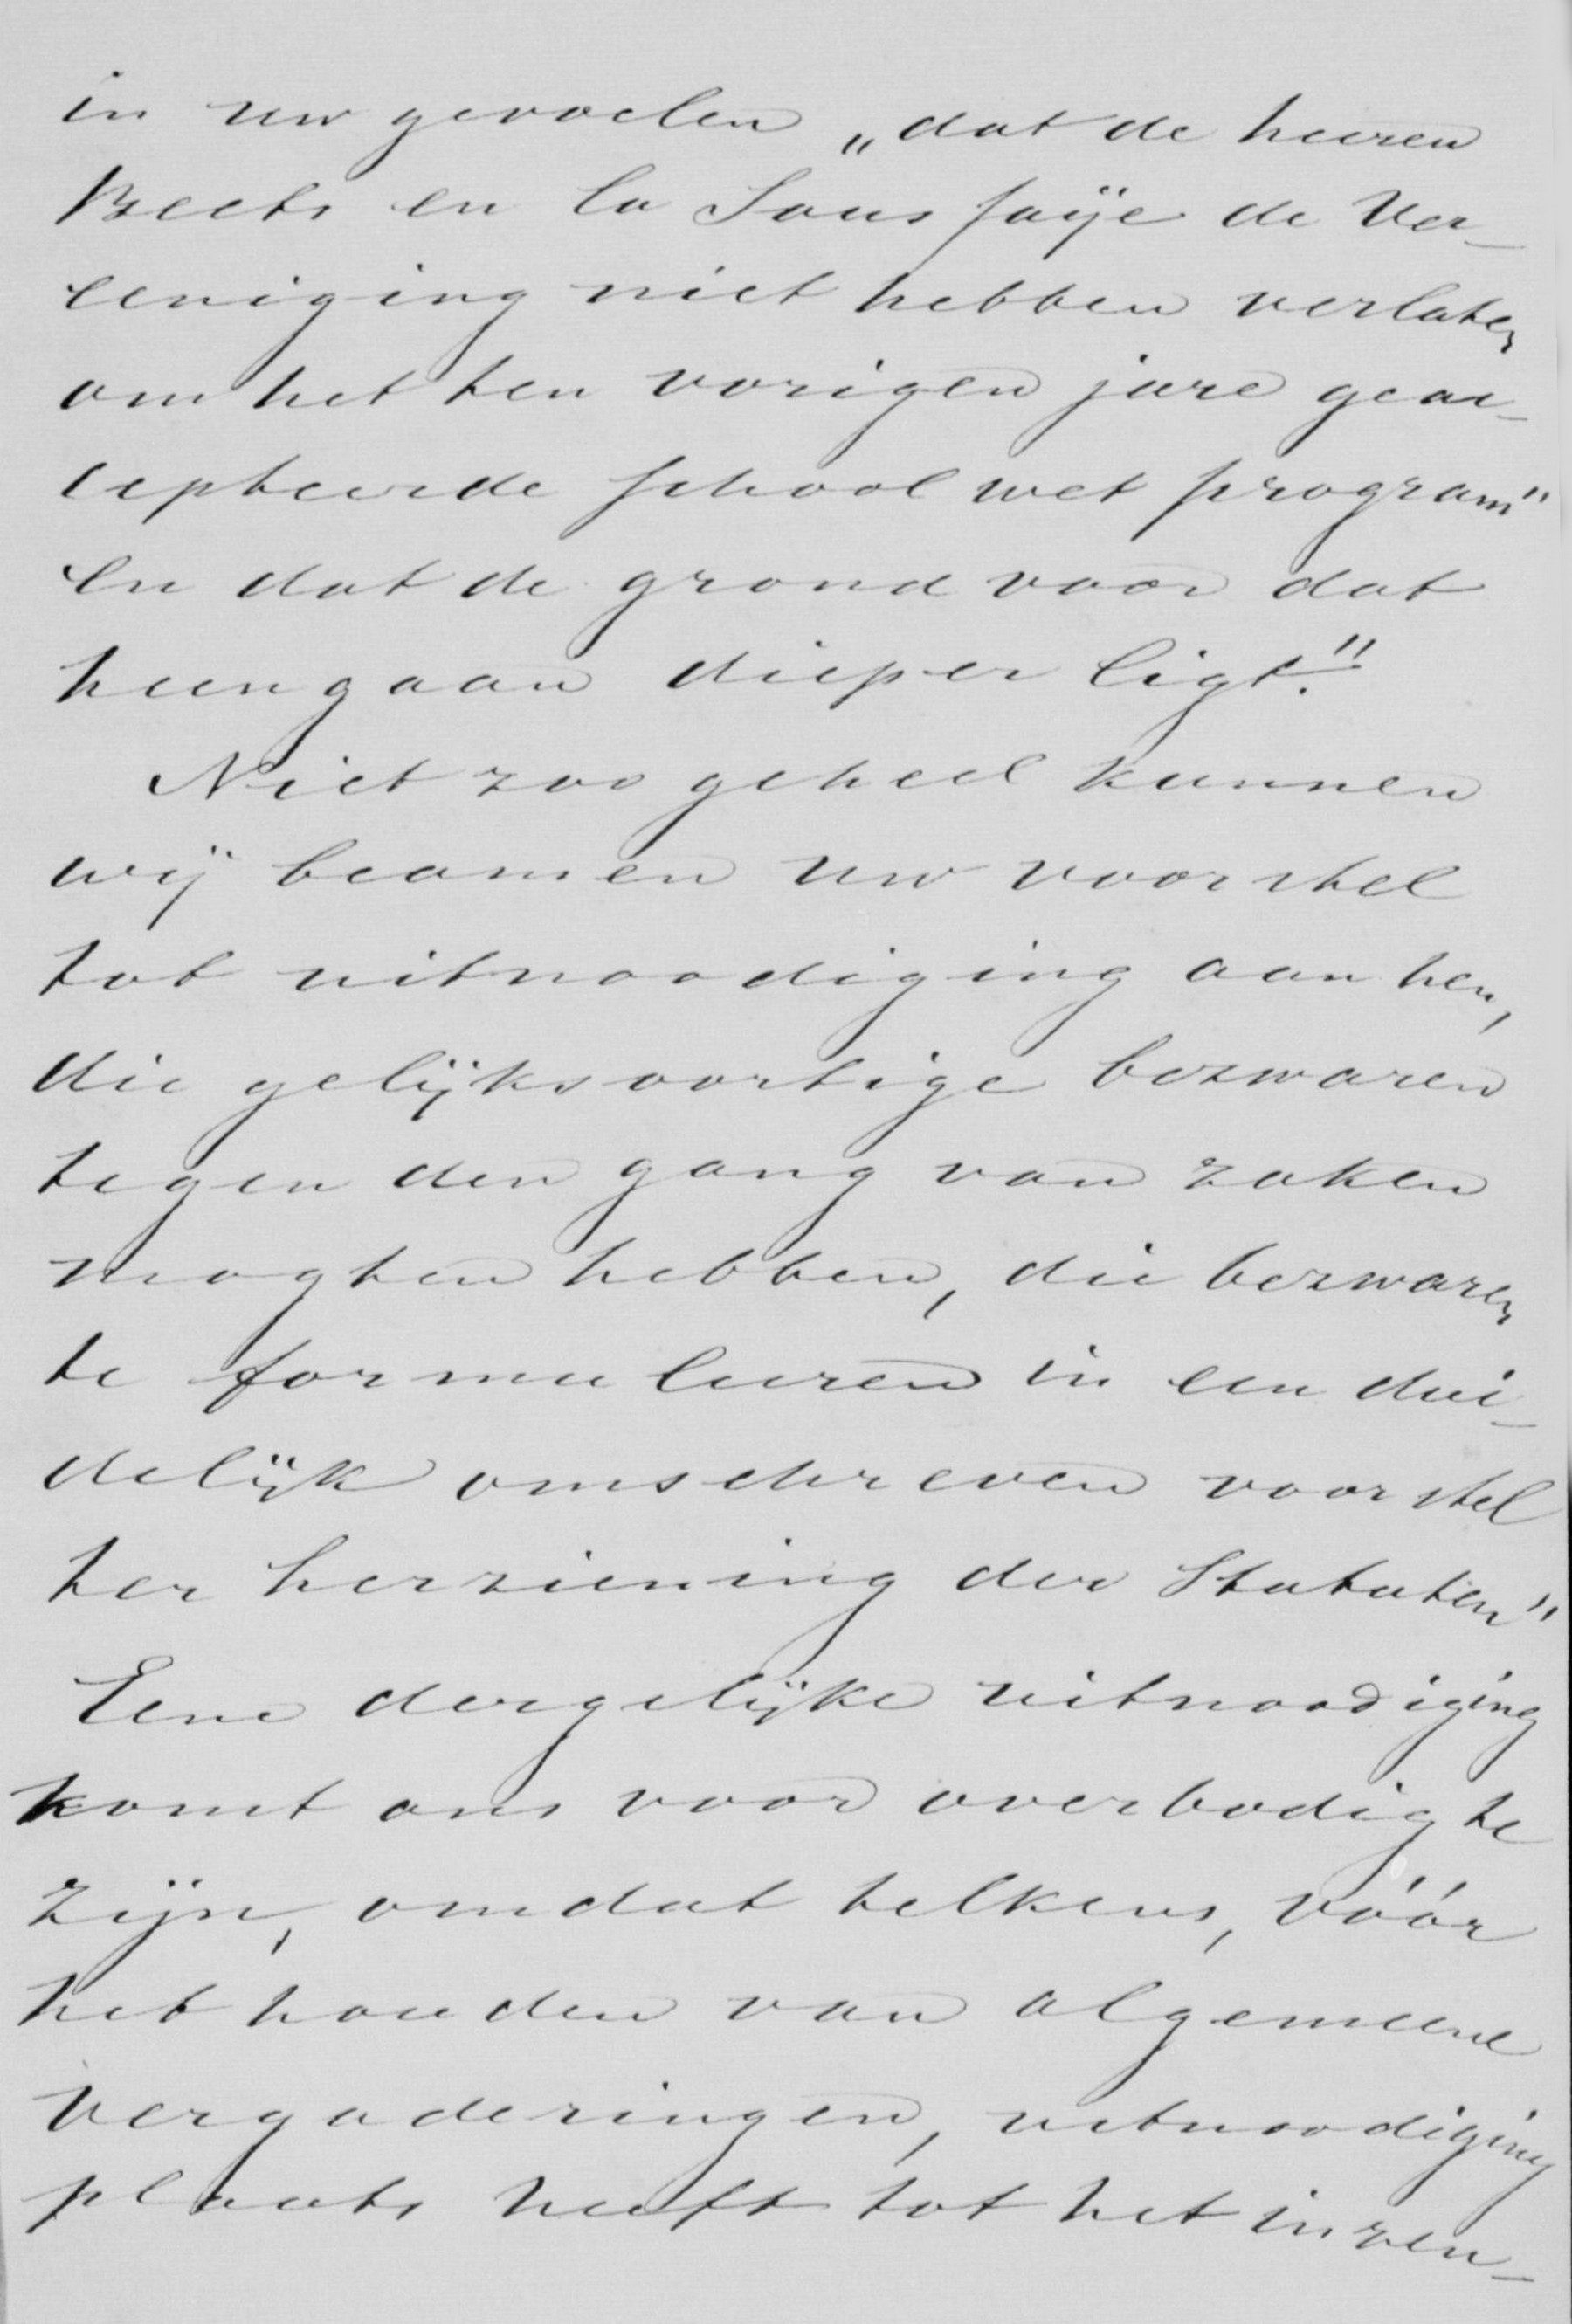 in uw gevoelen „dat de heeren
Beets en la Saussaÿe de Ver-
eeniging niet hebben verlaten
om het ten vorigen jare geac-
cepteerde schoolwet program"
en dat de grond voor dat
heengaan dieper ligt."
Niet zoo geheel kunnen
wij beamen uw voorstel
tot uitnoodiging aan hen,
die gelijksoortige bezwaren
tegen den gang van zaken
mogten hebben, die bezwaren
te formuleeren in een dui-
delijk omschreven voorstel
ter herziening der Statuten"
Eene dergelijke uitnoodiging
komt ons voor overbodig te
zijn, omdat telkens, vóór
het houden van algemeene
vergaderingen, uitnoodiging
plaats heeft tot het inzen-